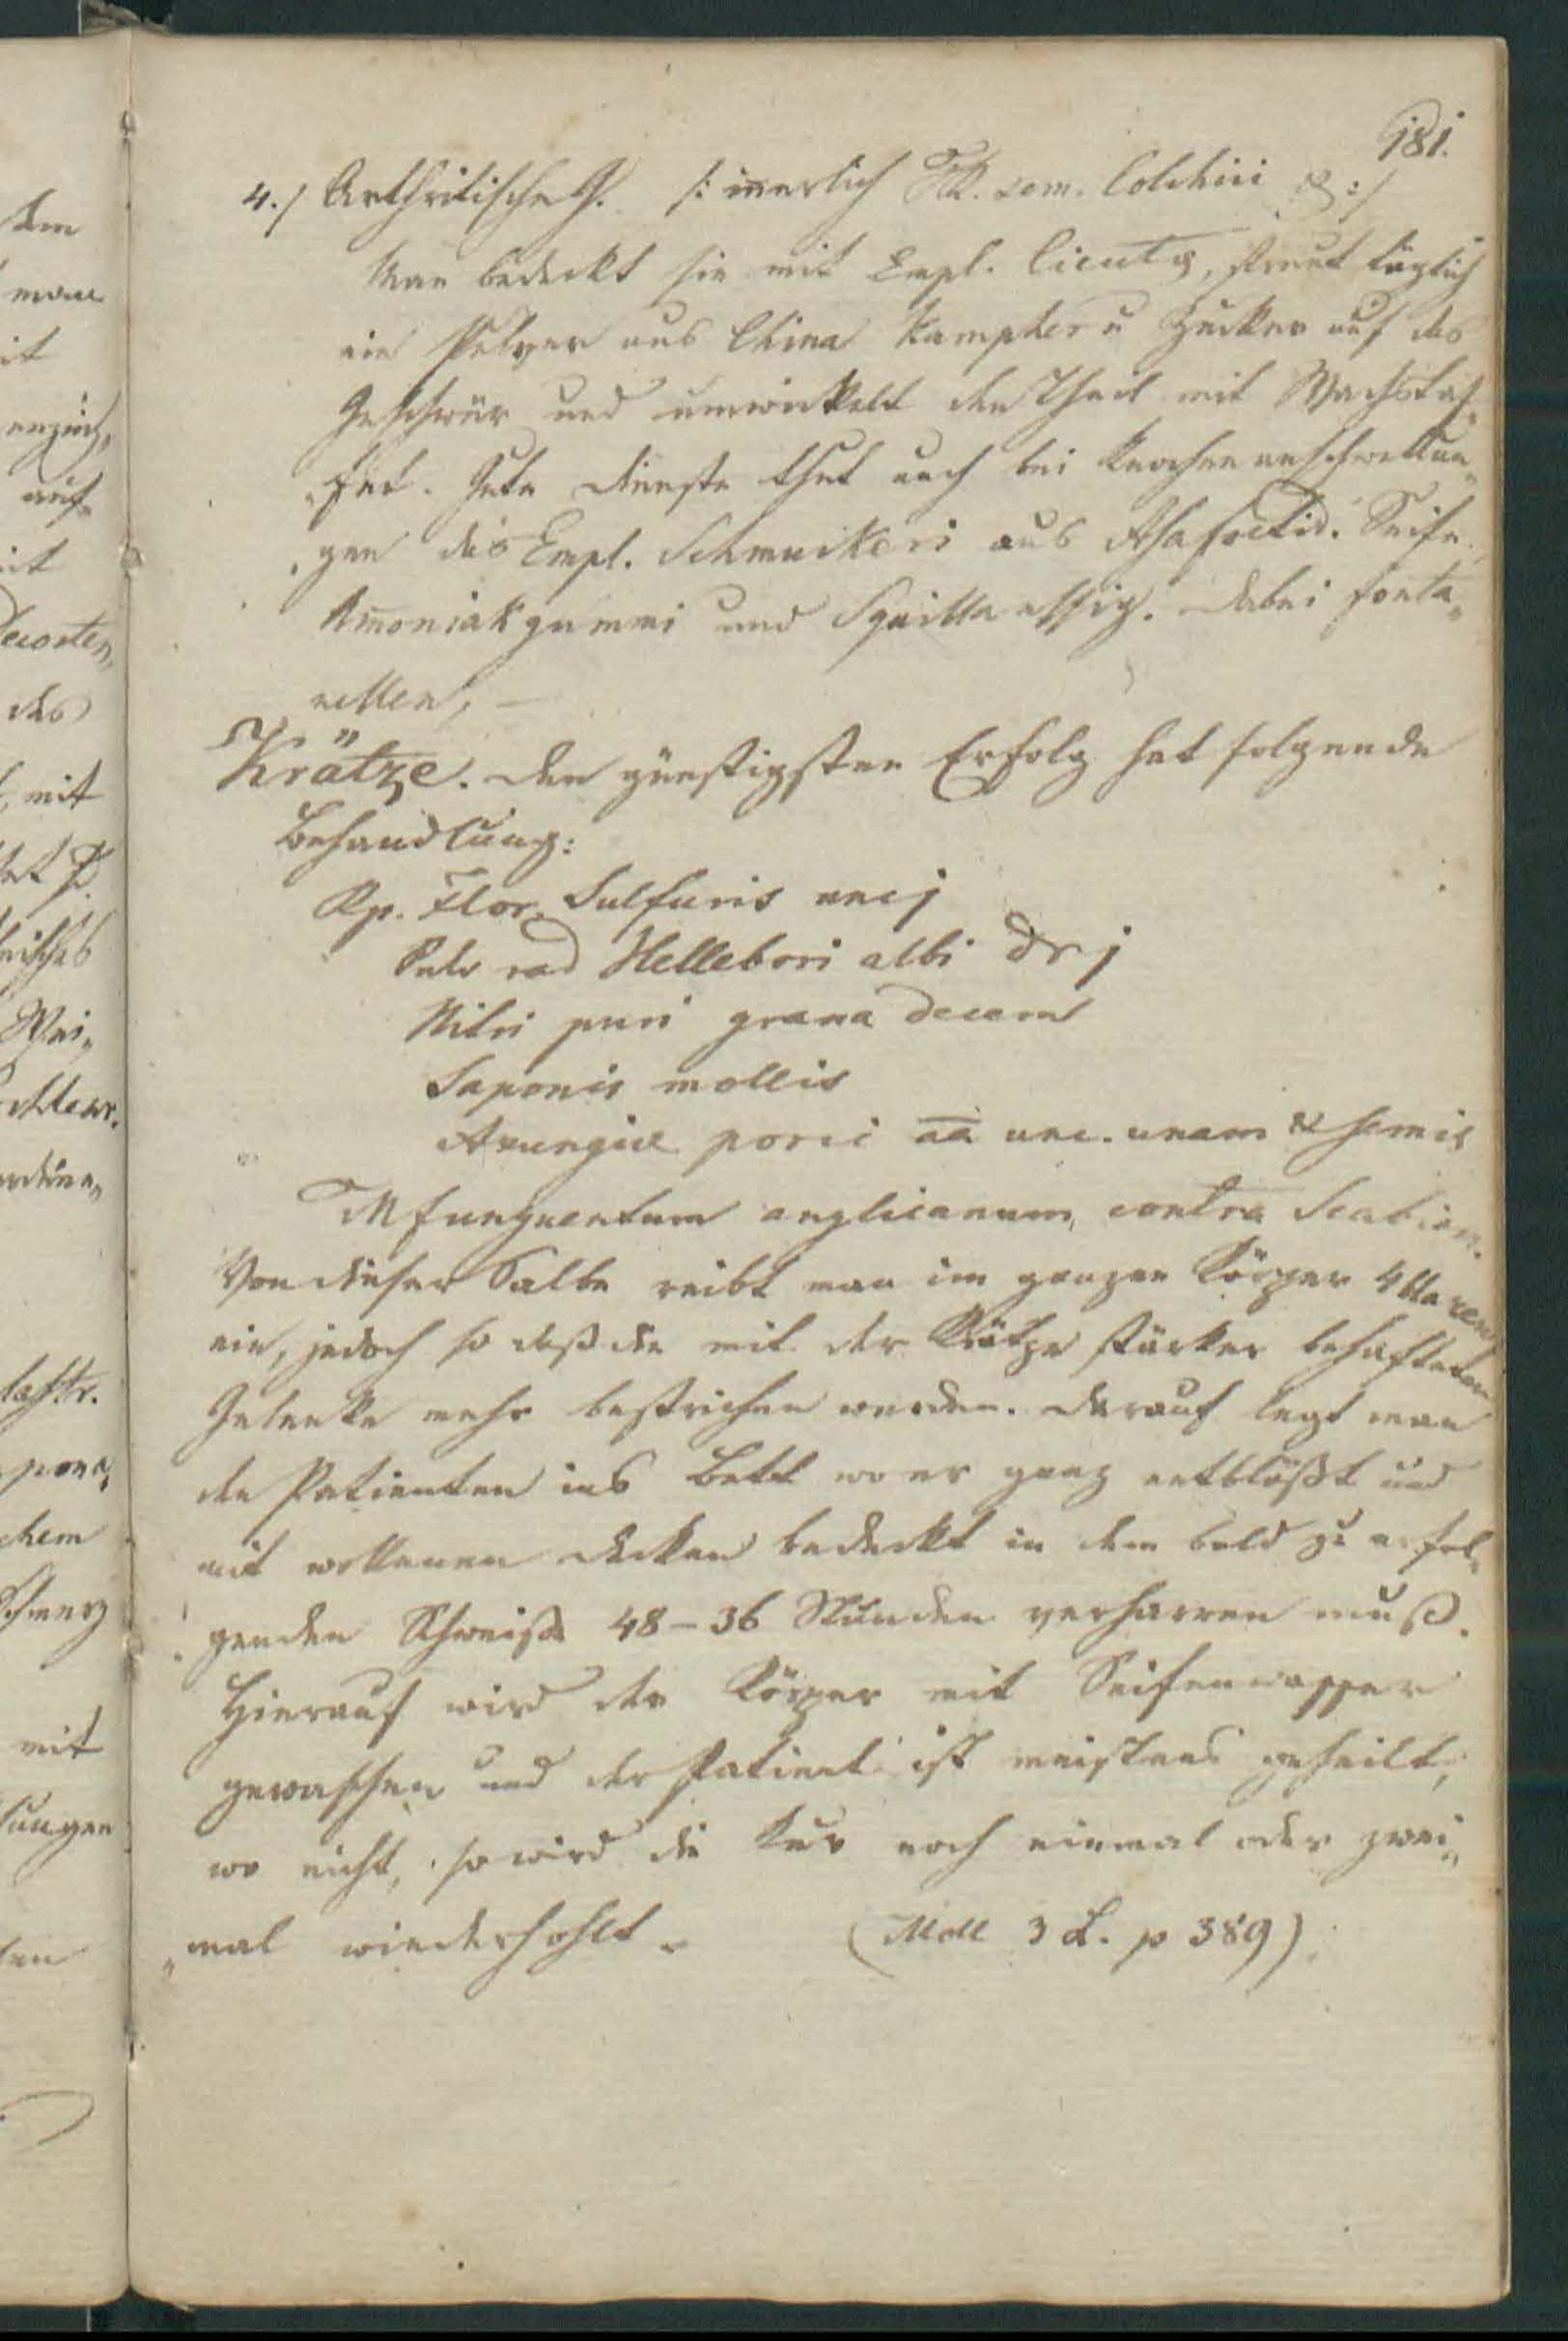 181.
4.) Arthritische G. /: innerlich Tk. sem. Colchici :/
Man bedeckt sie mit Empl. Cicutæ, streut täglich
ein Pulver aus China Kampher u Zucker auf das
Geschwür und umwickelt den Theil mit Wachstaf„
„fet. Gute Dienste thut auch bei Knochenanschwellun„
„gen das Empl. Schmuckeri aus Asa foetid. Seife
Am̅oniakgummi und Squillaessig. Dabei Fonta„
nellen, –
Krätze. Den günstigsten Erfolg hat folgende
Behandlung:
Rp. Flor. Sulfuris uncj
Pulv rad Hellebori albi Dr j
Nitri puri grana decem
Saponis mollis
Axungiæ porci aa unc. unam & semis
M f unguentum anglicanum contra Scabiem.
Von dieser Salbe reibt man im ganzen Körper 4
ein, jedoch so daß die mit der Krätze stärker behafteten
Gelenke mehr bestrichen werden. Darauf legt man
den Patienten ins Bett wo er ganz entblößt und
mit wollenen Decken bedeckt in dem bald zu erfol„
genden Schweiße 48–36 Stunden verharren muß.
Hierauf wird der Körper mit Seifenwasser
gewaschen und der Patient ist meistens geheilt,
wo nicht, so wird die Kur noch einmal oder zwei„
„mal wiederhohlt. (Moll 3 p 389)
dem
man
it
auf„
it
des
mit
Wei„
lastr.
chem
Schmerz
mit